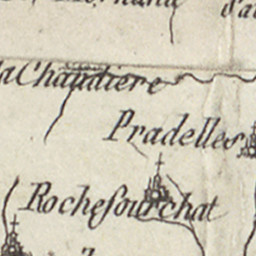 la Chaudiere
Pradelles
Rochefourchat